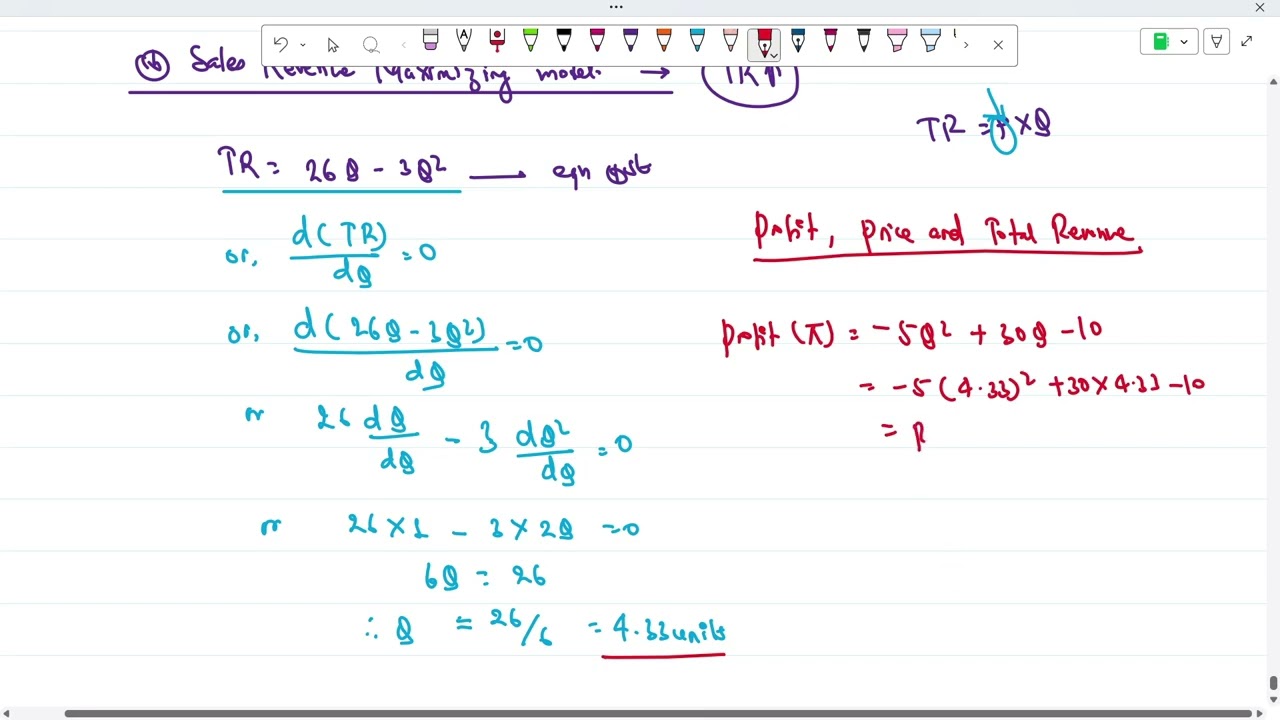 (ib) Sales Revenue Maximizing model → TR↑
TR = P × Q
TR = 26Q - 3Q² → eqn
or, d(TR)/dQ = 0
or, d(26Q - 3Q²)/dQ = 0
or 26 dQ/dQ - 3 dQ²/dQ = 0
or 26 × 1 - 3 × 2Q = 0
6Q = 26
∴ Q = 26/6 = 4.33 units
Profit, Price and Total Revenue
Profit (π) = -5Q² + 30Q - 10
= -5(4.33)² + 30 × 4.33 - 10
= R